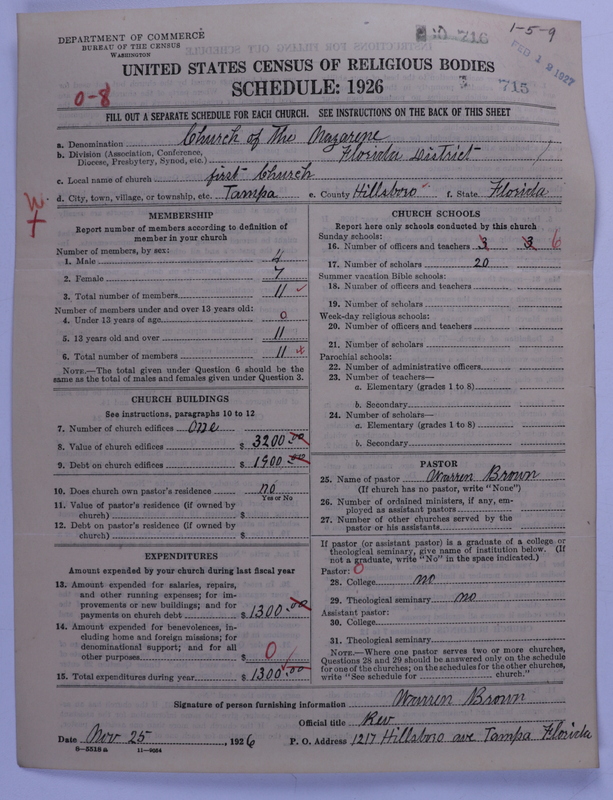 DEPARTMENT OF COMMERCE
BUREAU OF THE CENSUS
WASHINGTON
716
1-5-9
FEB 12 1927
UNITED STATES CENSUS OF RELIGIOUS BODIES
SCHEDULE: 1926
715
0-8
FILL OUT A SEPARATE SCHEDULE FOR EACH CHURCH. SEE INSTRUCTIONS ON THE BACK OF THIS SHEET
a. Denomination Church of The Nazarene
b. Division (Association, Conference, Diocese, Presbytery, Synod, etc.) Florida District
c. Local name of church first Church
d. City, town, village, or township, etc. Tampa e. County Hillsboro f. State Florida
MEMBERSHIP
Report number of members according to definition of
member in your church
Number of members, by sex:
1. Male 4
2. Female 7
3. Total number of members 11
Number of members under and over 13 years old:
4. Under 13 years of age 0
5. 13 years old and over 11
6. Total number of members 11
NOTE.—The total given under Question 6 should be
same as the total of males and females given under Question 3.
CHURCH BUILDINGS
See instructions, paragraphs 10 to 12
7. Number of church edifices one
8. Value of church edifices $ 3200.00
9. Debt on church edifices $ 1900.00
10. Does church own pastor's residence no
Yes or No
11. Value of pastor's residence (if owned by
church) $
12. Debt on pastor's residence (if owned by
church) $
EXPENDITURES
Amount expended by your church during last fiscal year
13. Amount expended for salaries, repairs,
and other running expenses; for im-
provements or new buildings; and for
payments on church debt $ 1300.00
14. Amount expended for benevolences, in-
cluding home and foreign missions; for
denominational support; and for all
other purposes $ 0
15. Total expenditures during year $ 1300.00
CHURCH SCHOOLS
Report here only schools conducted by this church
Sunday schools:
16. Number of officers and teachers 3 3 6
17. Number of scholars 20
Summer vacation Bible schools:
18. Number of officers and teachers
19. Number of scholars
Week-day religious schools:
20. Number of officers and teachers
21. Number of scholars
Parochial schools:
22. Number of administrative officers
23. Number of teachers—
a. Elementary (grades 1 to 8)
b. Secondary
24. Number of scholars—
a. Elementary (grades 1 to 8)
b. Secondary
PASTOR
25. Name of pastor Warren Brown
(If church has no pastor, write "None")
26. Number of ordained ministers, if any, em-
ployed as assistant pastors
27. Number of other churches served by the
pastor or his assistants
If pastor (or assistant pastor) is a graduate of a college or
theological seminary, give name of institution below. (If
not a graduate, write "No" in the space indicated.)
Pastor: 0
28. College no
29. Theological seminary no
Assistant pastor:
30. College
31. Theological seminary
NOTE.—Where one pastor serves two or more churches,
Questions 28 and 29 should be answered only on the schedule
for one of the churches; on the schedules for the other churches,
write "See schedule for church."
Signature of person furnishing information Warren Brown
Official title Rev
Date Nov 25, 1926 P. O. Address 1217 Hillsboro ave Tampa Florida
8-5518a 11-9664